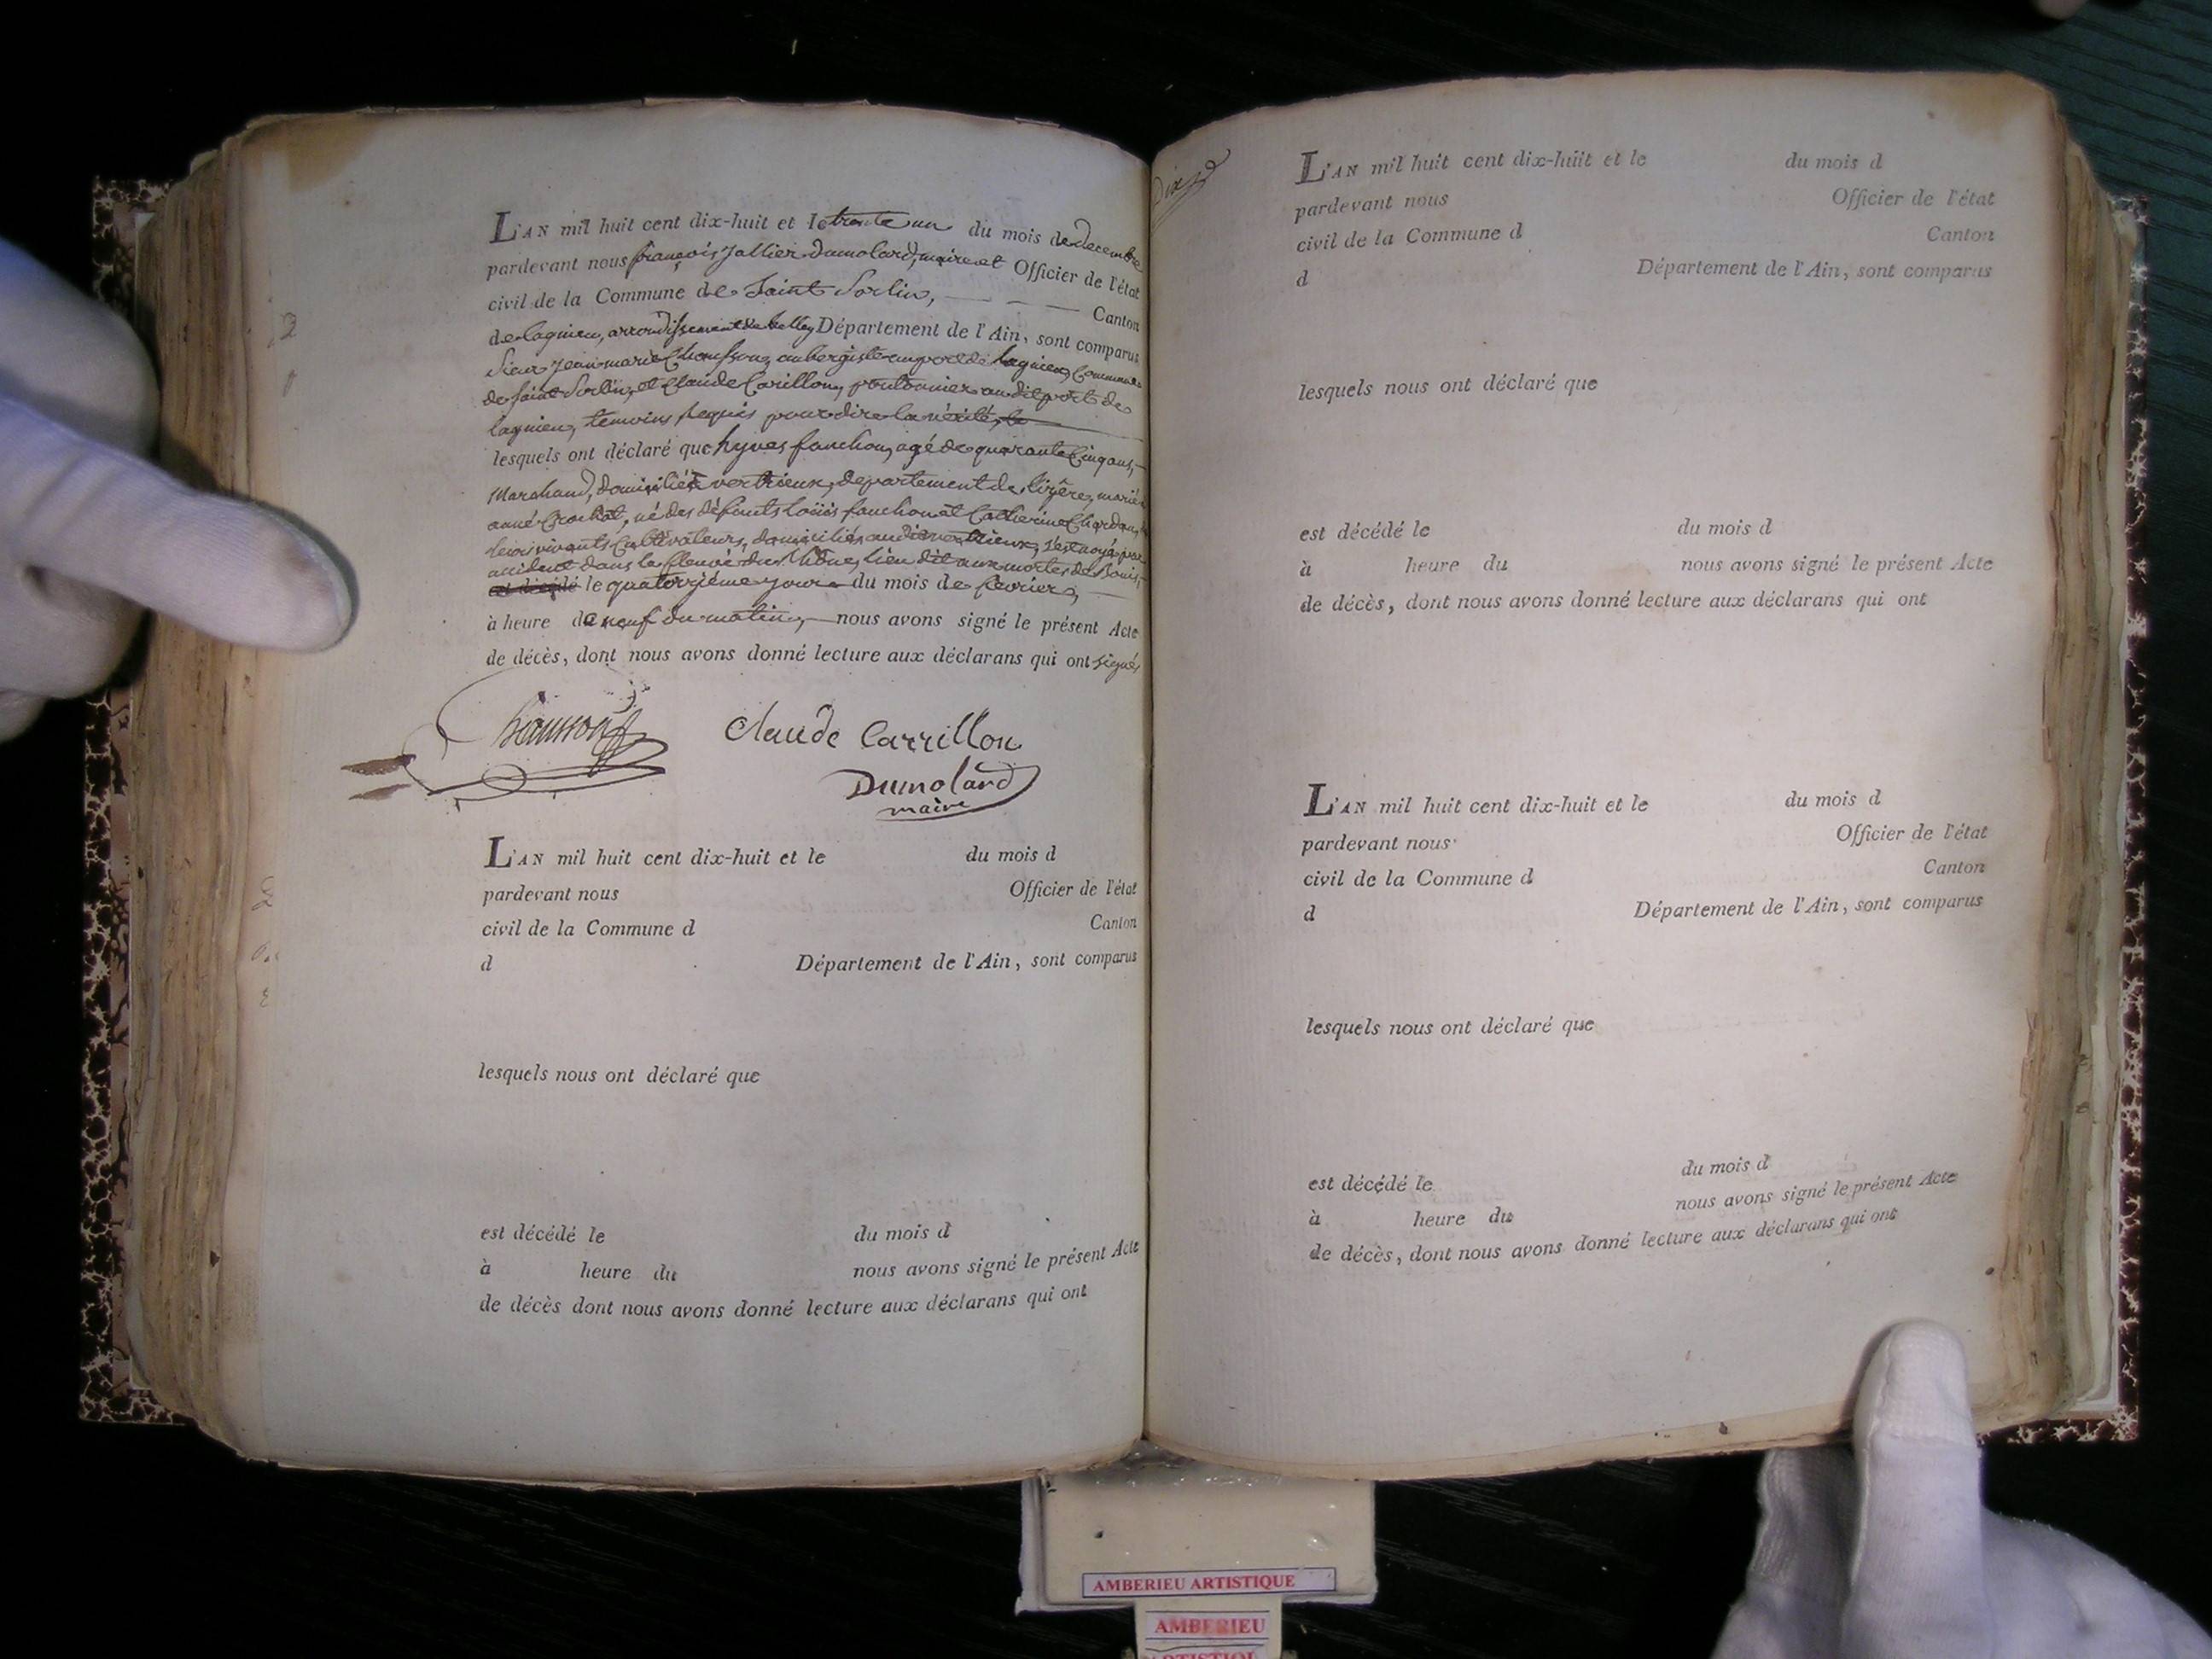 L'AN mil huit cent dix-huit et le trente un du mois de decembre
pardevant nous françois Jallier Dumolard, maire et Officier de l'état
civil de la Commune de Saint Sorlin, Canton
de lagnieu, arrondissement de belley Département de l'Ain, sont comparus
Sieur Jean marie Chausson, aubergiste au port de lagnieu, Commune
de Saint Sorlin, et Claude Carillon, pontonnier au dit port de
lagnieu, temoins requis pour dire la vérité,
lesquels ont déclaré que hyves fanchon, agé de quarante Cinq ans,
Marchand, domicilié à vertrieux, departement de l'izère, marié
anne Crochat, né des défunts loüis fanchon et Catherine Chardon,
leurs vivants Cultivateurs, domiciliés au dit vertrieux, s'est noyé par
accident dans le fleuve du Rhône, lieu dit aux mortes de
le quatorzième jour du mois de fevrier,
à heure de neuf du matin, nous avons signé le présent Acte
de décès, dont nous avons donné lecture aux déclarans qui ont signés
Chausson
Claude Carrillon
Dumolard
maire
L'AN mil huit cent dix-huit et le du mois d
pardevant nous Officier de l'état
civil de la Commune d Canton
d Département de l'Ain, sont comparus
lesquels nous ont déclaré que
est décédé le du mois d
à heure du nous avons signé le présent Acte
de décès dont nous avons donné lecture aux déclarans qui ont
Dix
L'AN mil huit cent dix-huit et le du mois d
pardevant nous Officier de l'état
civil de la Commune d Canton
d Département de l'Ain, sont comparus
lesquels nous ont déclaré que
est décédé le du mois d
à heure du nous avons signé le présent Acte
de décès, dont nous avons donné lecture aux déclarans qui ont
L'AN mil huit cent dix-huit et le du mois d
pardevant nous Officier de l'état
civil de la Commune d Canton
d Département de l'Ain, sont comparus
lesquels nous ont déclaré que
est décédé le du mois d
à heure du nous avons signé le présent Acte
de décès, dont nous avons donné lecture aux déclarans qui ont
AMBERIEU ARTISTIQUE
AMBERIEU
ARTISTIQU